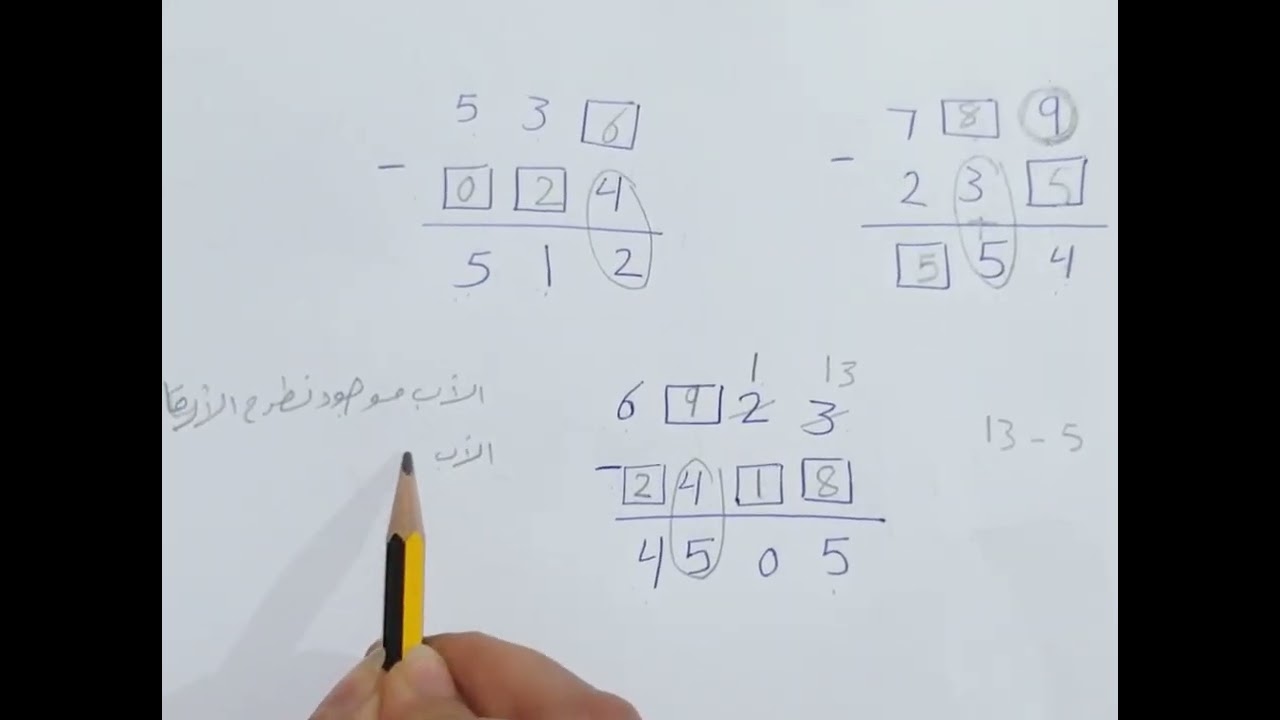 5 3 6
- 0 2 4
5 1 2
7 8 9
- 2 3 5
5 5 4
1 13
6 9 2 3
- 2 4 1 8
4 5 0 5
13 - 5
الأب موجود نطرح الأرقا
الأب